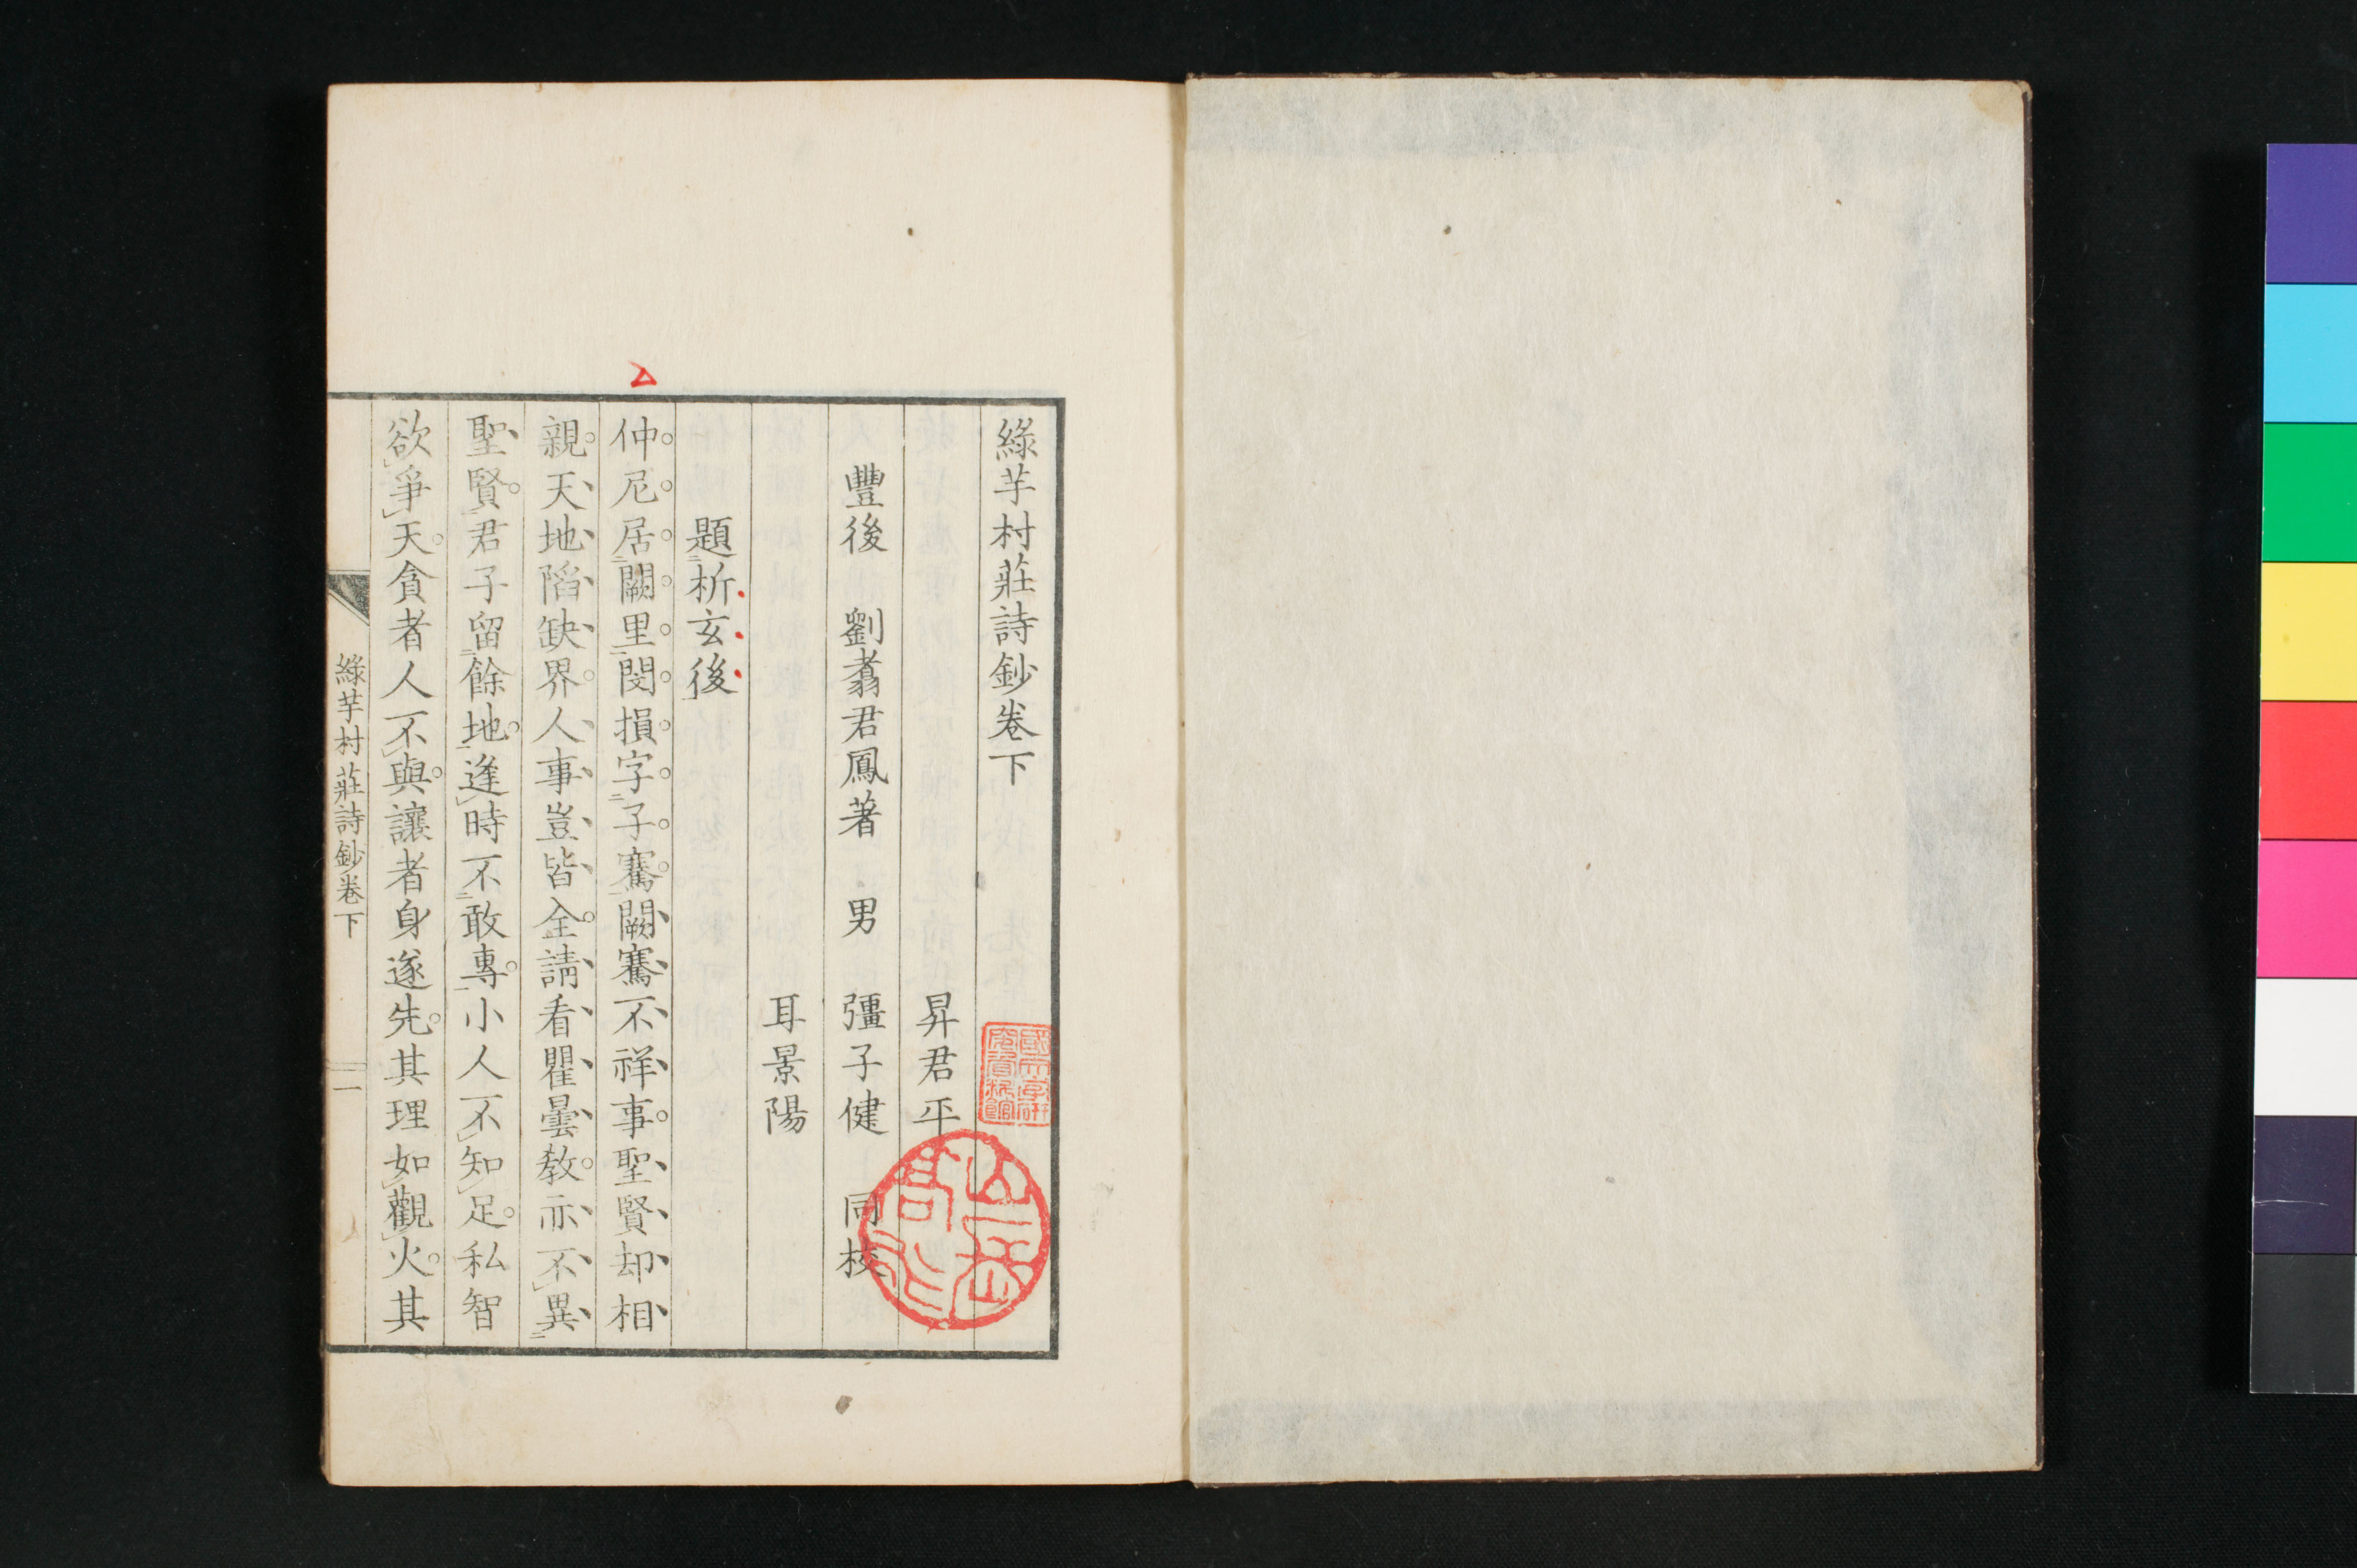 綠芋村莊詩鈔卷下
昇君平
豐後　劉翥君鳳著　男　彊子健　同校
耳景陽
題析玄後
仲尼居闕里閔損字子騫闕騫不祥事聖賢却相
親天地陷缺界人事豈皆全請看瞿曇教示不異
聖賢君子留餘地逢時不敢專小人不知足私智
欲爭天貪者人不與讓者身遂先其理如觀火其
綠芋村莊詩鈔卷下
一